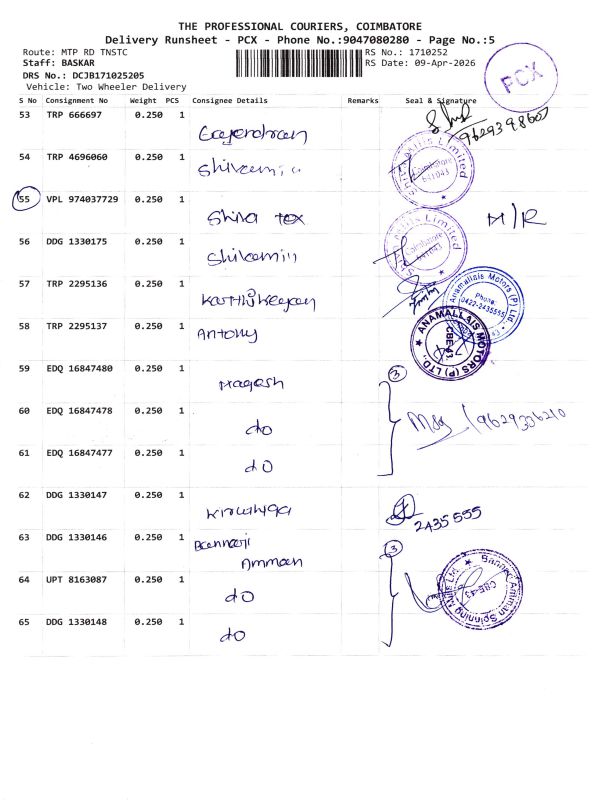 THE PROFESSIONAL COURIERS, COIMBATORE
Delivery Runsheet - PCX - Phone No.:9047080280 - Page No.:5
Route: MTP RD TNSTC
RS No.: 1710252
Staff: BASKAR
RS Date: 09-Apr-2026
DRS No.: DCJB171025205
Vehicle: Two Wheeler Delivery
PCX
S No Consignment No Weight PCS Consignee Details Remarks Seal & Signature
53 TRP 666697 0.250 1
Gajendran
9629398607
54 TRP 4696060 0.250 1
Coimbatore
641043
Mills Limited
55 VPL 974037729 0.250 1
Shiva tex
H/R
56 DDG 1330175 0.250 1
Coimbatore
641043
Mills Limited
57 TRP 2295136 0.250 1
Karthikeyan
Anamallais Motors (P) Ltd.
Phone:
0422-2435555
58 TRP 2295137 0.250 1
Antony
ANAMALLAIS MOTORS (P) LTD.
CBE-43
59 EDQ 16847480 0.250 1
Magesh
3
60 EDQ 16847478 0.250 1
do
9629336210
61 EDQ 16847477 0.250 1
do
62 DDG 1330147 0.250 1
2435555
63 DDG 1330146 0.250 1
Bannari
Amman
3
64 UPT 8163087 0.250 1
do
Bannari Amman Spinning Mills Ltd
CBE-43
65 DDG 1330148 0.250 1
do